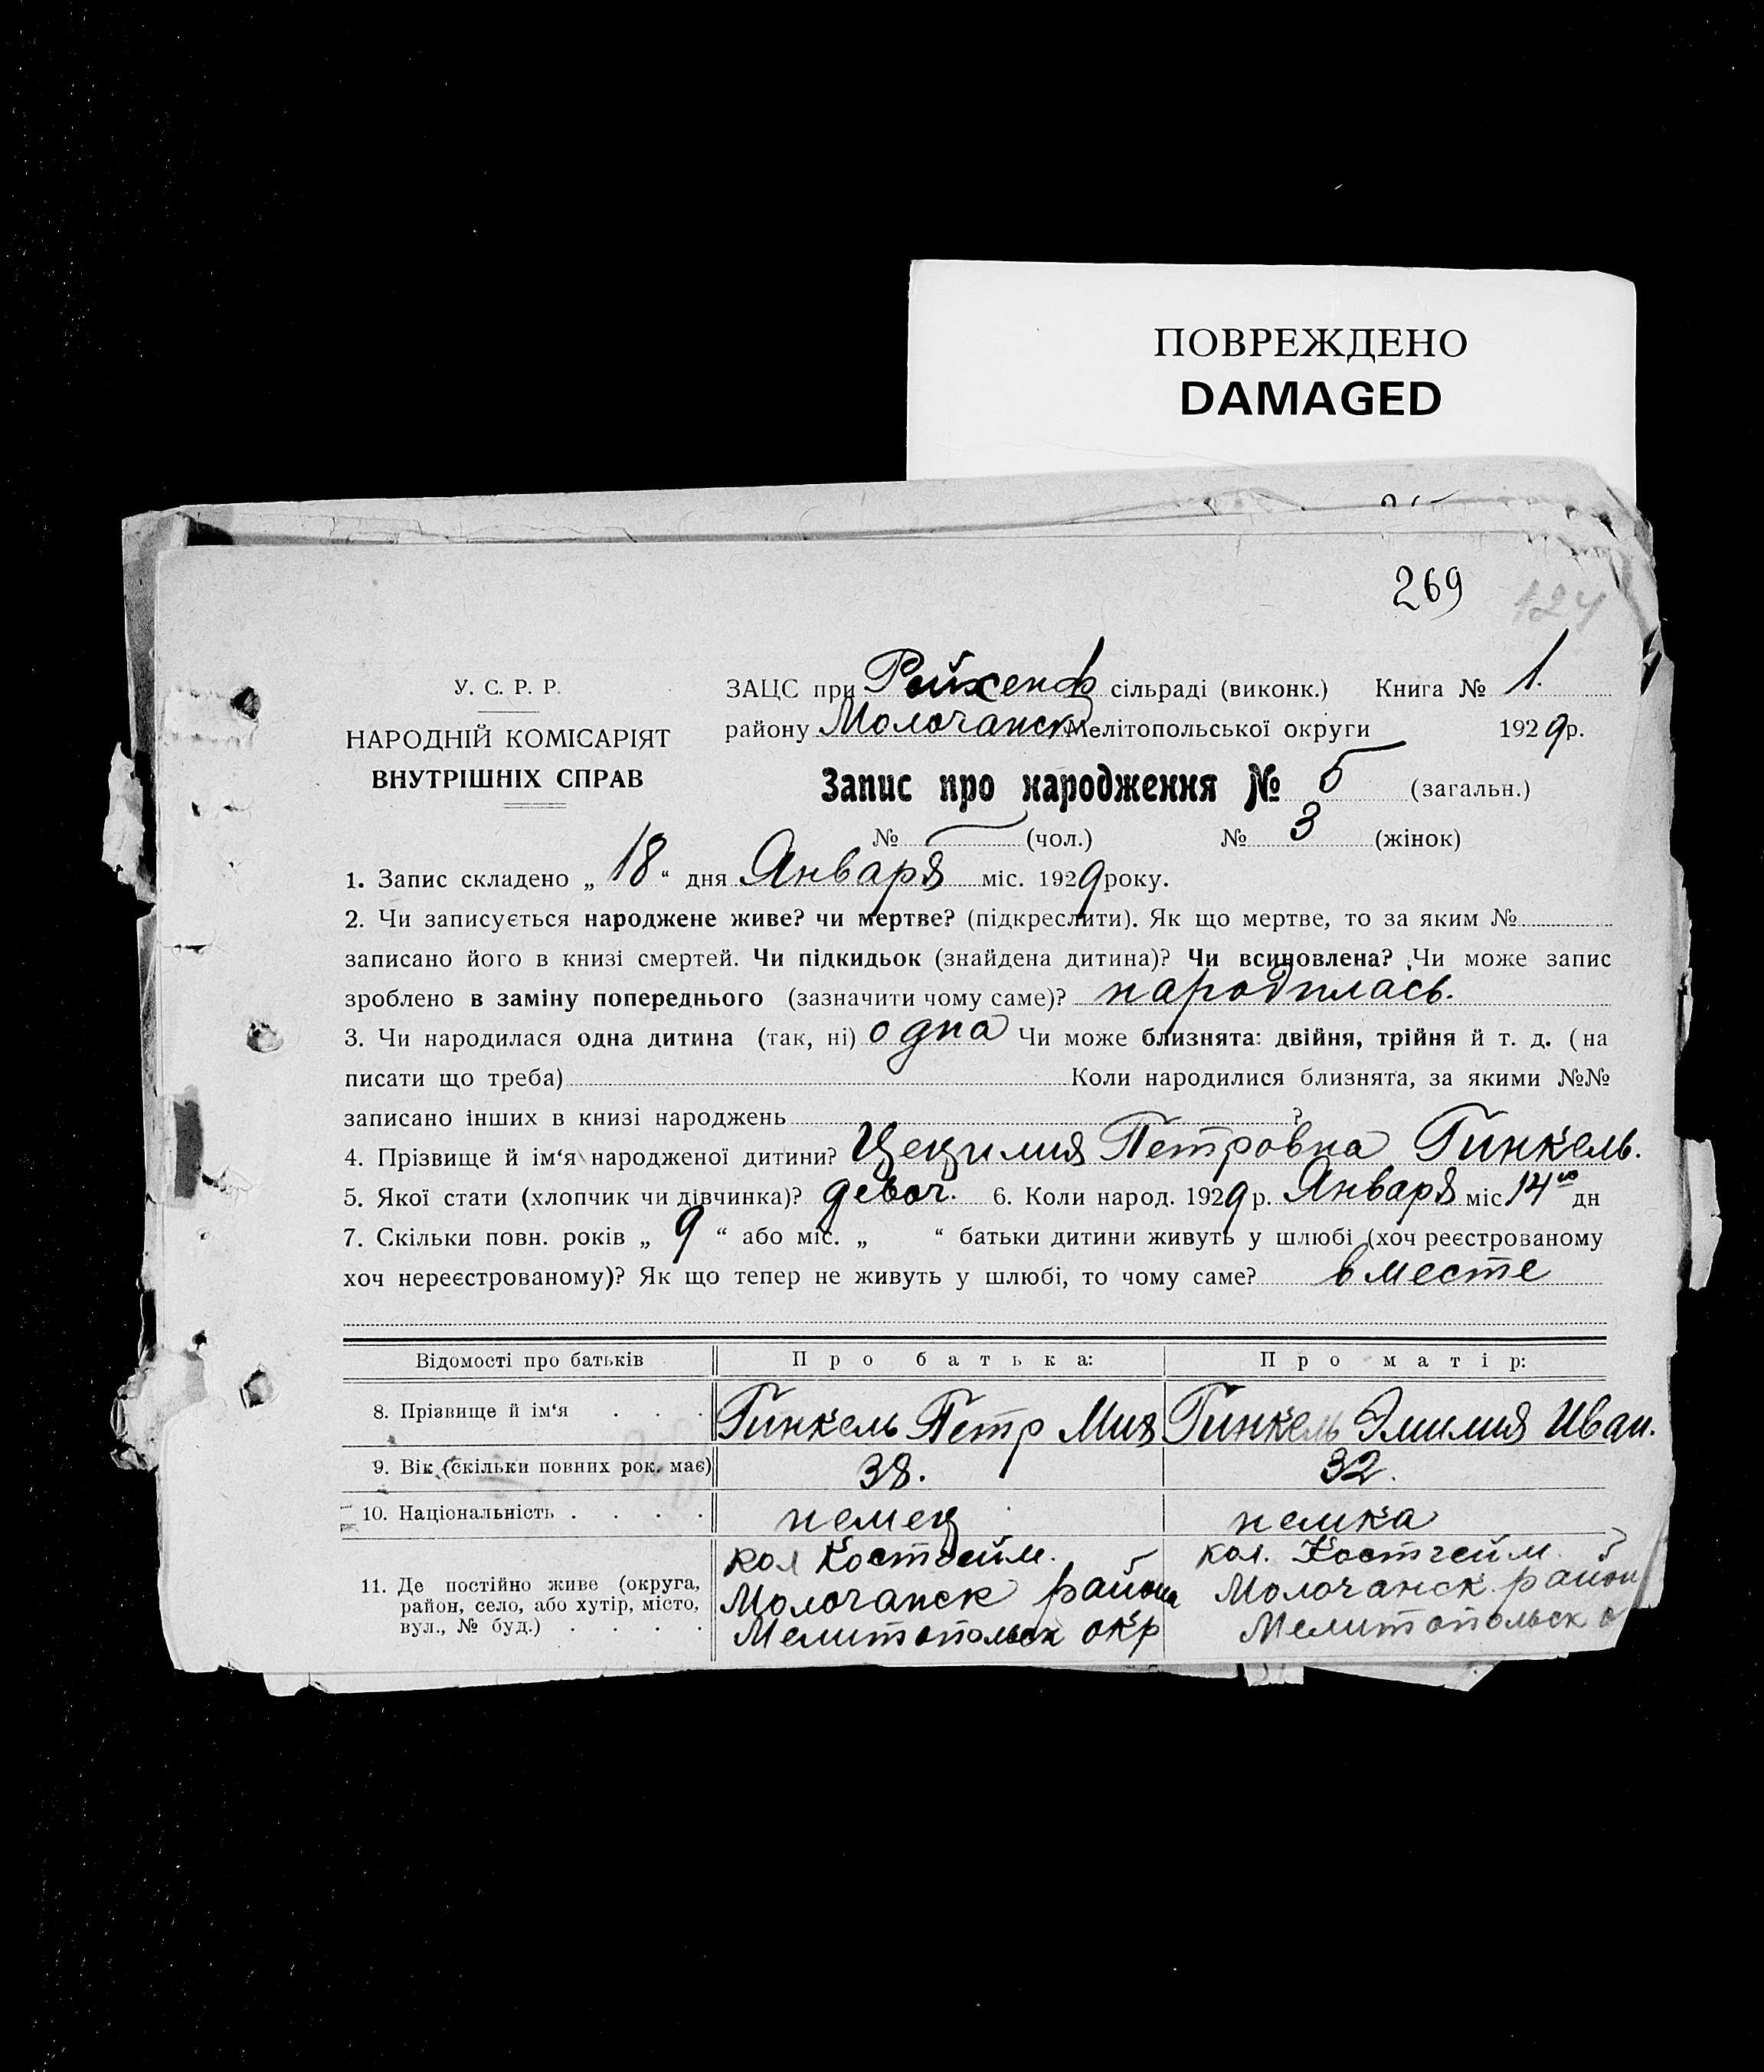 ПОВРЕЖДЕНО
DAMAGED
269
124
У. С. Р. Р.
НАРОДНІЙ КОМІСАРІЯТ
ВНУТРІШНІХ СПРАВ
ЗАЦС при Рейхенф сільраді (виконк.) Книга № 1.
району Молочанск Мелітопольської округи 1929 р.
Запис про народження № 5 (загальн.)
№ (чол.) № 3 (жінок)
1. Запис складено „ 18 “ дня Января міс. 1929 року.
2. Чи записується народжене живе? чи мертве? (підкреслити). Як що мертве, то за яким №
записано його в книзі смертей. Чи підкидьок (знайдена дитина)? Чи всиновлена? Чи може запис
зроблено в заміну попереднього (зазначити чому саме)? народилась.
3. Чи народилася одна дитина (так, ні) одна Чи може близнята: двійня, трійня й т. д. (на
писати що треба) Коли народилися близнята, за якими №№
записано інших в книзі народжень ?
4. Прізвище й ім‘я народженої дитини? Цецилия Петровна Гинкель.
5. Якої стати (хлопчик чи дівчинка)? девоч. 6. Коли народ. 1929 р. Января міс 14го дн
7. Скільки повн. років „ 9 “ або міс. „ “ батьки дитини живуть у шлюбі (хоч реєстрованому
хоч нереєстрованому)? Як що тепер не живуть у шлюбі, то чому саме? вместе
Відомості про батьків Про батька: Про матір:
8. Прізвище й ім‘я . . . Гинкель Петр Мих Гинкель Эмилия Иван.
9. Вік (скільки повних рок. має) 38. 32.
10. Національність . . . . немец немка
11. Де постійно живе (округа, район, село, або хутір, місто, вул., № буд.) . . . .
кол Костгейм.
Молочанск района
Мелитопольск окр
кол. Костгейм.
Молочанск район
Мелитопольск о